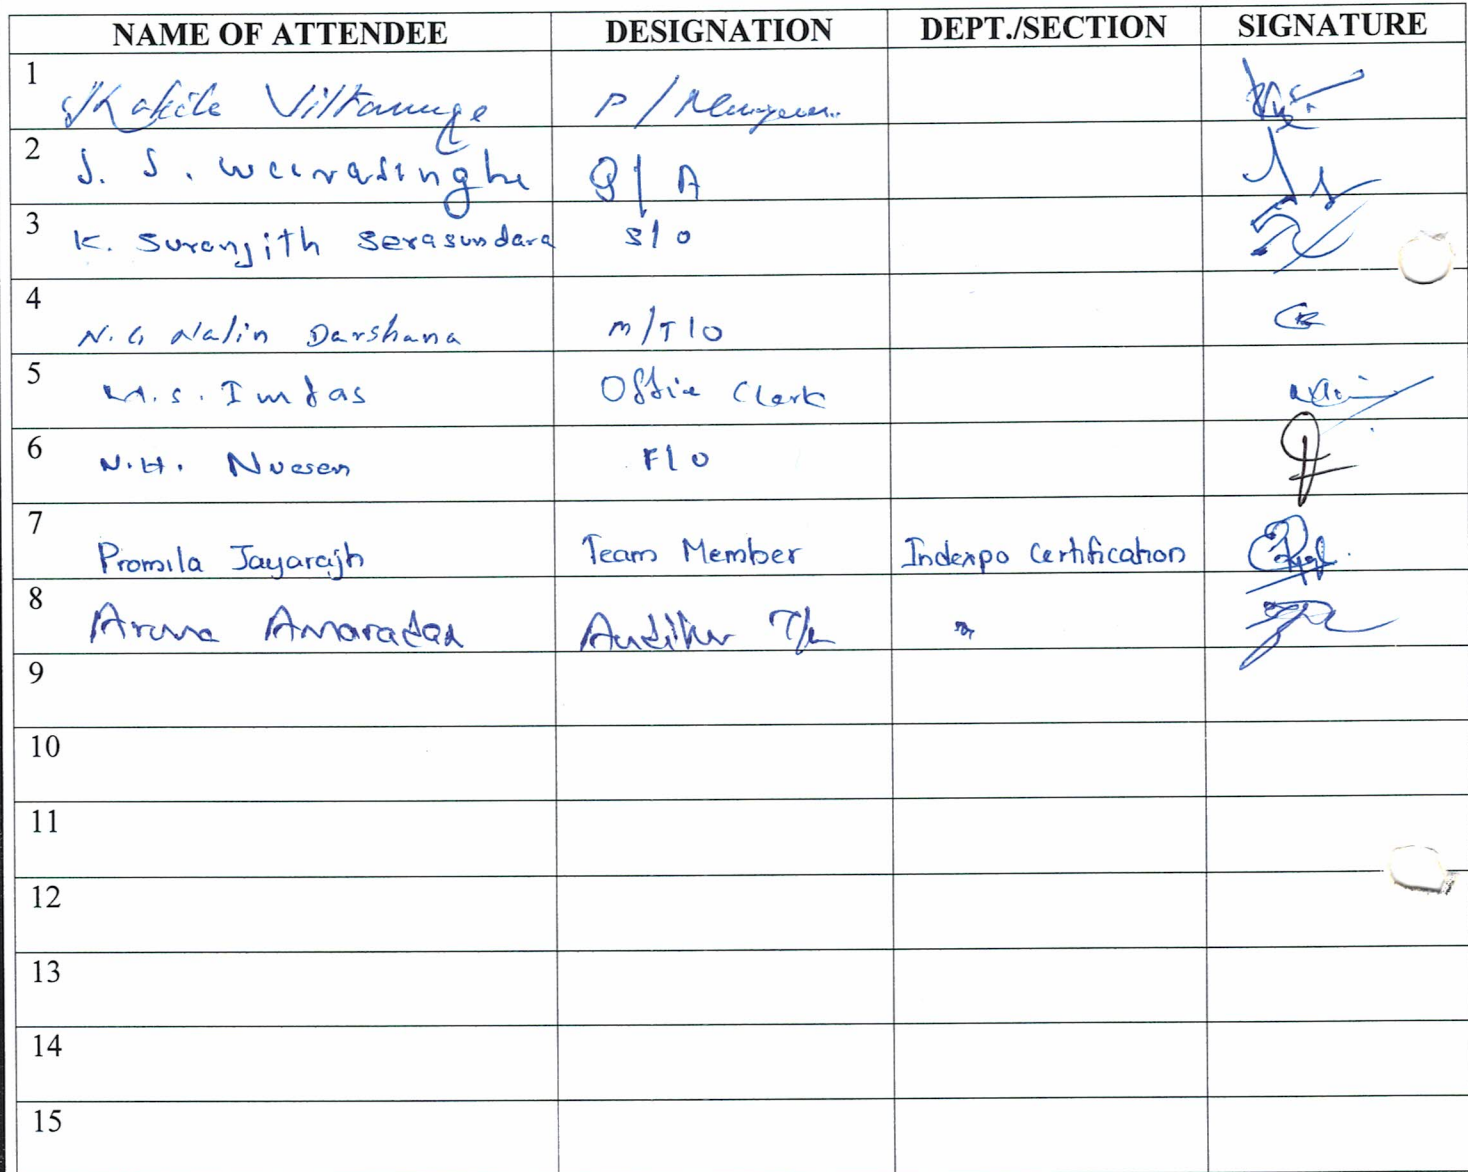 NAME OF ATTENDEE DESIGNATION DEPT./SECTION SIGNATURE
1 P /
2 J. S. Weerasinghe Q/A
3 K. Suranjith Serasundara S/O
4 N. G Nalin Darshana M/T/O
5 M.S. Imfas Office Clerk
6 N.H. F/O
7 Promila Jayarajh Team Member Indexpo Certification
8 Aruna
9
10
11
12
13
14
15